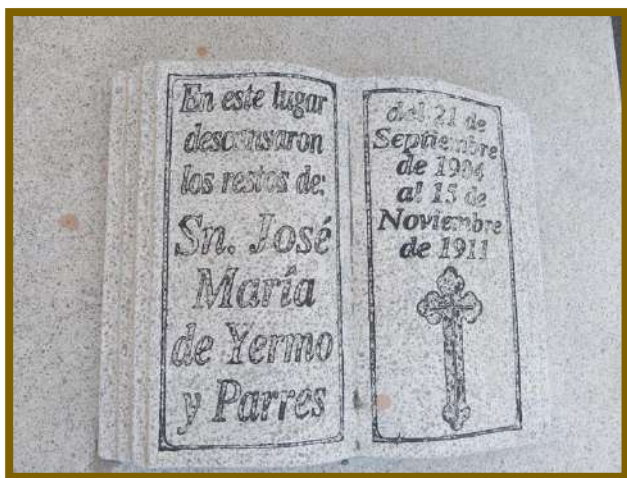 En este lugar
descansaron
los restos de:
Sn. José
María
de Yermo
y Parres
del 21 de
Septiembre
de 1904
al 15 de
Noviembre
de 1911